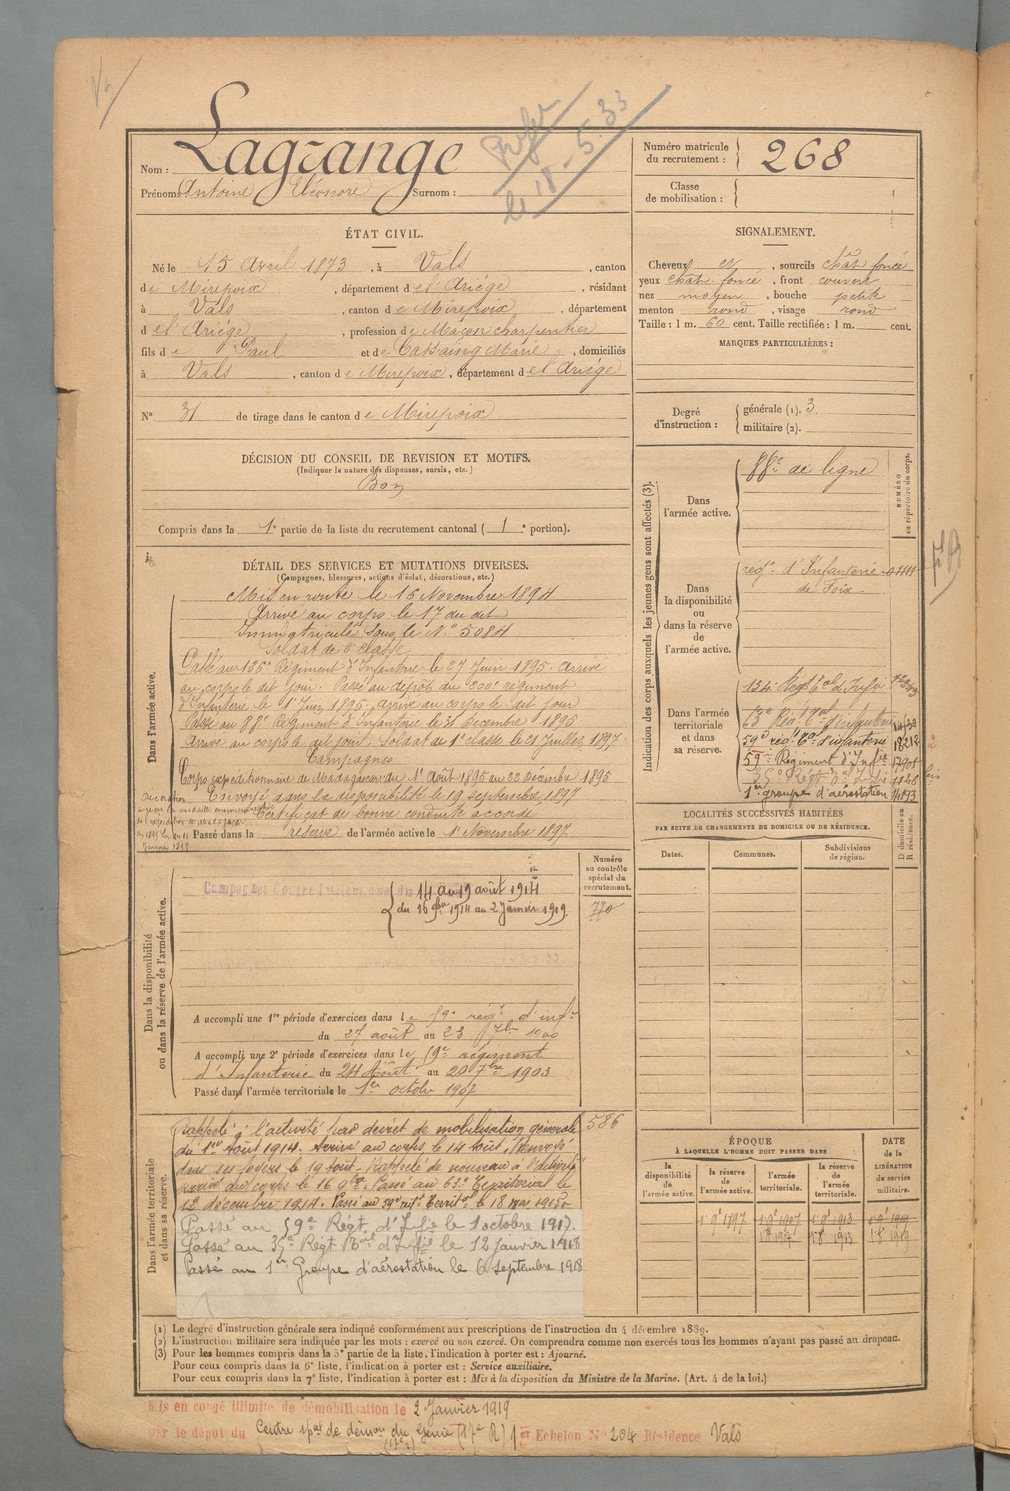 Lagrange
Nom :
Prénoms : Antoine Eléonore Surnom :
le 18-5.33
Numéro matricule du recrutement : 268
Classe de mobilisation :
ÉTAT CIVIL.
Né le 15 Avril 1873, à Vals, canton
de Mirepoix, département de l'Ariége, résidant
à Vals, canton de Mirepoix, département
d el' Ariége, profession de Maçon charpentier
fils de Paul et de Cassaing Marie, domiciliés
à Vals, canton de Mirepoix, département de l'Ariége
N° 31 de tirage dans le canton de Mirepoix
SIGNALEMENT.
Cheveux et, sourcils chât foncé
yeux chât. foncé, front couvert
nez moyen, bouche petite
menton rond, visage rond
Taille : 1 m. 60 cent. Taille rectifiée : 1 m. cent.
MARQUES PARTICULIÈRES :
Degré d'instruction : générale (1). 3
militaire (2).
DÉCISION DU CONSEIL DE REVISION ET MOTIFS.
(Indiquer la nature des dispenses, sursis, etc.)
Bon
Compris dans la 1e partie de la liste du recrutement cantonal ( 1 e portion).
DÉTAIL DES SERVICES ET MUTATIONS DIVERSES.
(Campagnes, blessures, actions d'éclat, décorations, etc.)
Dans l'armée active.
Mis en route le 15 Novembre 1894
Arrivé au corps le 17 du dit
Immatriculé sous le N° 5084
Soldat de 2e classe
Passé au Régiment d'Infanterie le 27 Juin 1895. Arrivé
au corps le dit jour. Passé au dépôt du 200e régiment
d'Infanterie le 1er Juin 1895, arrivé au corps le dit jour
Passé au 88e Régiment d'Infanterie le 31 Décembre 1895
Arrivé au corps le dit jour. Soldat de 1e classe le 21 Juillet 1897
Campagnes
Corps expéditionnaire de Madagascar du 1er Août 1895 au 22 Décembre 1895
Envoyé dans la disponibilité le 19 septembre 1897
Certificat de bonne conduite accordé
Passé dans la réserve de l'armée active le 1er Novembre 1897
Indication des corps auxquels les jeunes gens sont affectés (3).
NUMÉRO au répertoire du corps.
Dans l'armée active.
88e de ligne
Dans la disponibilité ou dans la réserve de l'armée active.
régt. d'Infanterie
de Foix
Dans l'armée territoriale et dans sa réserve.
134e Regt tal d'Infie
63e Régt tal d'infanterie
59e régt tal d'infanterie 18212
59e Régiment d'Infie 17901
35e Régt tal d'Infie 1126 bis
1er groupe d'aérostation 14193
LOCALITÉS SUCCESSIVES HABITÉES
PAR SUITE DE CHANGEMENTS DE DOMICILE OU DE RÉSIDENCE.
Dates. Communes. Subdivisions de région.
D domicile ou R résidence.
Dans la disponibilité ou dans la réserve de l'armée active.
Numéro au contrôle spécial du recrutement.
770
Campagnes Contre l'Allemagne du 14 au 19 août 1914
du 16 9bre 1914 au 2 Janvier 1919
A accompli une 1re période d'exercices dans le 59e régt d'infie
du 27 août au 23 7bre 1900
A accompli une 2e période d'exercices dans le 59e régiment
d'Infanterie du 24 Août au 20 7bre 1903
Passé dans l'armée territoriale le 1er octobre 1907
Dans l'armée territoriale et dans sa réserve.
586
Rappelé à l'activité par décret de mobilisation générale
du 1er Août 1914. Arrivé au corps le 14 Août. Renvoyé
dans ses foyers le 19 Août. Rappelé de nouveau à l'activité
arrivé au corps le 16 9bre. Passé au 63e Territorial le
12 décembre 1914. Passé au 59e régt. territal le 18 mai 1915
Passé au 59e Régt d'Infie le 1 octobre 1917.
Passé au 35e Régt tal d'Infie le 12 janvier 1918
Passé au 1er Groupe d'aérostation le 6 septembre 1918
ÉPOQUE
À LAQUELLE L'HOMME DOIT PASSER DANS
la disponibilité de l'armée active. la réserve de l'armée active. l'armée territoriale. la réserve de l'armée territoriale.
DATE de la LIBÉRATION du service militaire.
1er 9e 1897 1er 9e 1907 1er 9e 1913 1er 9e 1919
(1) Le degré d'instruction générale sera indiqué conformément aux prescriptions de l'instruction du 4 décembre 1889.
(2) L'instruction militaire sera indiquée par les mots : exercé ou non exercé. On comprendra comme non exercés tous les hommes n'ayant pas passé au drapeau.
(3) Pour les hommes compris dans la 5e partie de la liste, l'indication à porter est : Ajourné.
Pour ceux compris dans la 6e liste, l'indication à porter est : Service auxiliaire.
Pour ceux compris dans la 7e liste, l'indication à porter est : Mis à la disposition du Ministre de la Marine. (Art. 4 de la loi.)
Mis en congé illimité de démobilisation le 2 Janvier 1919
par le dépôt du Centre spal de démon du Génie (17e R) 1er Echelon N° 204 Résidence Vals